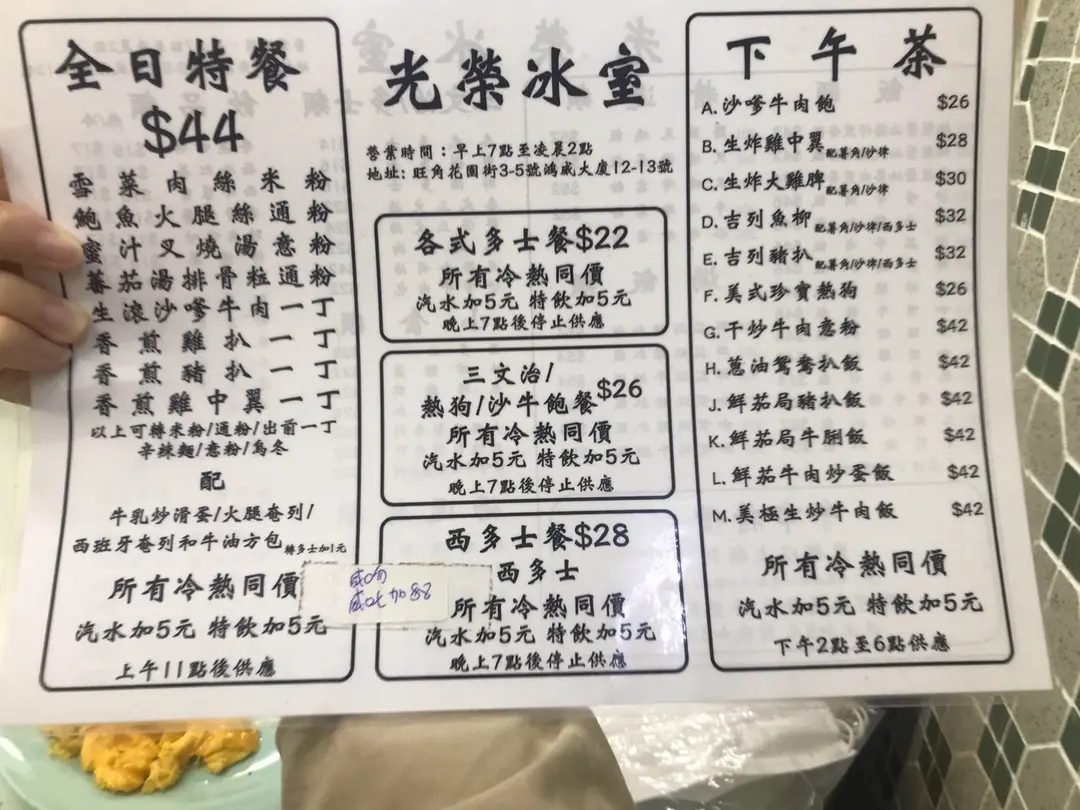 全日特餐
$44
雪菜肉絲米粉
鮑魚火腿絲通粉
蜜汁叉燒湯意粉
蕃茄湯排骨粒通粉
生滾沙嗲牛肉一丁
香煎雞扒一丁
香煎豬扒一丁
香煎雞中翼一丁
以上可轉米粉/通粉/出前一丁
辛辣麵/意粉/烏冬
配
牛乳炒滑蛋/火腿奄列/
西班牙奄列和牛油方包轉多士加1元
所有冷熱同價
汽水加5元 特飲加5元
上午11點後供應
光榮冰室
營業時間：早上7點至凌晨2點
地址: 旺角花園街3-5號鴻威大廈12-13號
各式多士餐$22
所有冷熱同價
汽水加5元 特飲加5元
晚上7點後停止供應
三文治/
熱狗/沙牛飽餐$26
所有冷熱同價
汽水加5元 特飲加5元
晚上7點後停止供應
西多士餐$28
西多士
所有冷熱同價
汽水加5元 特飲加5元
晚上7點後停止供應
下午茶
A.沙嗲牛肉飽 $26
B.生炸雞中翼配薯角/沙律 $28
C.生炸大雞脾配薯角/沙律 $30
D.吉列魚柳配薯角/沙律/西多士 $32
E.吉列豬扒配薯角/沙律/西多士 $32
F.美式珍寶熱狗 $26
G.干炒牛肉意粉 $42
H.蔥油鴛鴦扒飯 $42
J.鮮茄局豬扒飯 $42
K.鮮茄局牛脷飯 $42
L.鮮茄牛肉炒蛋飯 $42
M.美極生炒牛肉飯 $42
所有冷熱同價
汽水加5元 特飲加5元
下午2點至6點供應